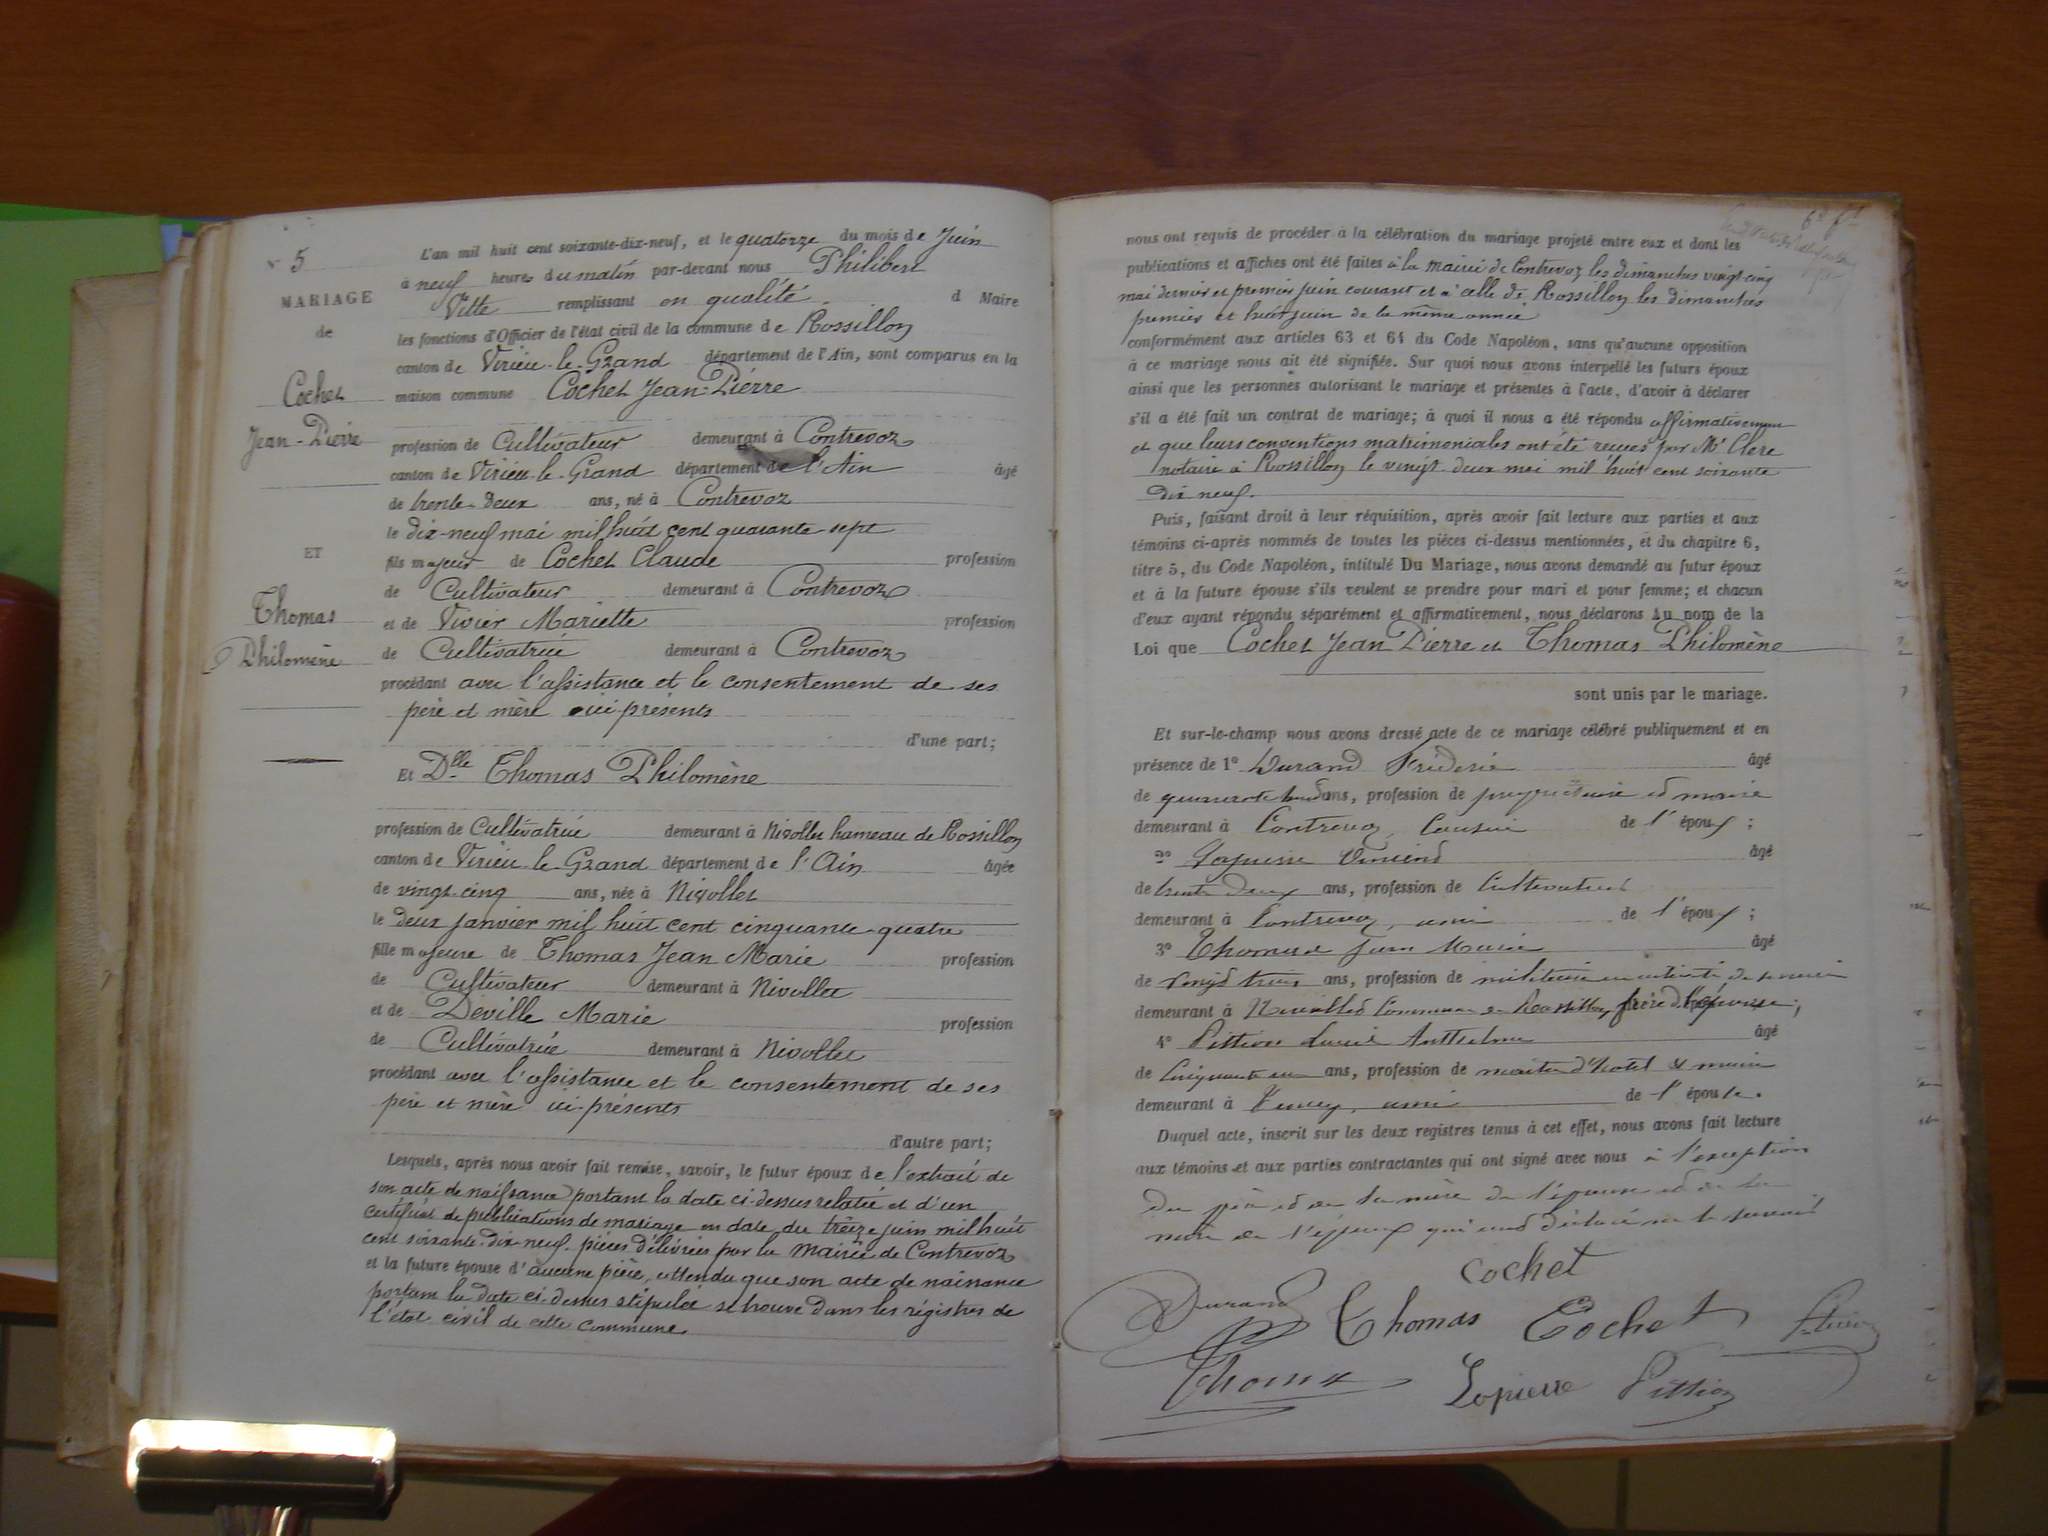 N° 5
MARIAGE
de
Cochet
Jean-Pierre
ET
Thomas
Philomène
L'an mil huit cent soixante-dix-neuf, et le quatorze du mois de Juin
à neuf heures du matin par-devant nous Philibert
Vitte remplissant en qualité d Maire
les fonctions d'Officier de l'état civil de la commune de Rossillon
canton de Virieu-le-Grand département de l'Ain, sont comparus en la
maison commune Cochet Jean-Pierre
profession de Cultivateur demeurant à Contrevoz
canton de Virieu-le-Grand département de l'Ain âgé
de trente-deux ans, né à Contrevoz
le dix-neuf mai mil huit cent quarante-sept
fils majeur de Cochet Claude profession
de Cultivateur demeurant à Contrevoz
et de Vivier Mariette profession
de Cultivatrice demeurant à Contrevoz
procédant avec l'assistance et le consentement de ses
père et mère ici présents
d'une part;
Et Dlle Thomas Philomène
profession de Cultivatrice demeurant à Nivollet hameau de Rossillon
canton de Virieu-le-Grand département de l'Ain âgée
de vingt-cinq ans, née à Nivollet
le deux janvier mil huit cent cinquante-quatre
fille majeure de Thomas Jean Marie profession
de Cultivateur demeurant à Nivollet
et de Deville Marie profession
de Cultivatrice demeurant à Nivollet
procédant avec l'assistance et le consentement de ses
père et mère ici présents
d'autre part;
Lesquels, après nous avoir fait remise, savoir, le futur époux de l'extrait de
son acte de naissance portant la date ci-dessus relatée et d'un
certificat de publications de mariage en date du treize juin mil huit
cent soixante-dix-neuf, pièces délivrées par la Mairie de Contrevoz
et la future épouse d'aucune pièce, attendu que son acte de naissance
portant la date ci-dessus stipulée se trouve dans les régistres de
l'état civil de cette commune
nous ont requis de procéder à la célébration du mariage projeté entre eux et dont les
publications et affiches ont été faites à la mairie de Contrevoz les dimanches vingt-cinq
mai dernier et premier juin courant et à celle de Rossillon les dimanches
premier et huit juin de la même année
conformément aux articles 63 et 64 du Code Napoléon, sans qu'aucune opposition
à ce mariage nous ait été signifiée. Sur quoi nous avons interpellé les futurs époux
ainsi que les personnes autorisant le mariage et présentes à l'acte, d'avoir à déclarer
s'il a été fait un contrat de mariage; à quoi il nous a été répondu affirmativement
et que leurs conventions matrimoniales ont été reçues par Me Clerc
notaire à Rossillon le vingt deux mai mil huit cent soixante
dix neuf.
Puis, faisant droit à leur réquisition, après avoir fait lecture aux parties et aux
témoins ci-après nommés de toutes les pièces ci-dessus mentionnées, et du chapitre 6,
titre 5, du Code Napoléon, intitulé Du Mariage, nous avons demandé au futur époux
et à la future épouse s'ils veulent se prendre pour mari et pour femme; et chacun
d'eux ayant répondu séparément et affirmativement, nous déclarons Au nom de la
Loi que Cochet Jean Pierre et Thomas Philomène
sont unis par le mariage.
Et sur-le-champ nous avons dressé acte de ce mariage célébré publiquement et en
présence de 1° Durand Fréderic âgé
de quarante ans, profession de propriétaire et maire
demeurant à Contrevoz, Cousin de l'époux;
2° Lapierre Vincent âgé
de trente deux ans, profession de Cultivateur
demeurant à Contrevoz, ami de l'époux;
3° Thomas Jean Marie âgé
de Vingt trois ans, profession de militaire en activité de service
demeurant à Nivollet Commune de Rossillon, frère de l'épouse;
4° Pittion Anthelme âgé
de Cinquante un ans, profession de maitre d'hotel et maire
demeurant à ami de l'épouse.
Duquel acte, inscrit sur les deux registres tenus à cet effet, nous avons fait lecture
aux témoins et aux parties contractantes qui ont signé avec nous à l'exception
du père et de la mère de l'épouse et de la
mère de l'époux qui ont déclaré ne le savoir
Cochet
Durand Thomas Cochet
Thomas Lapierre Pittion